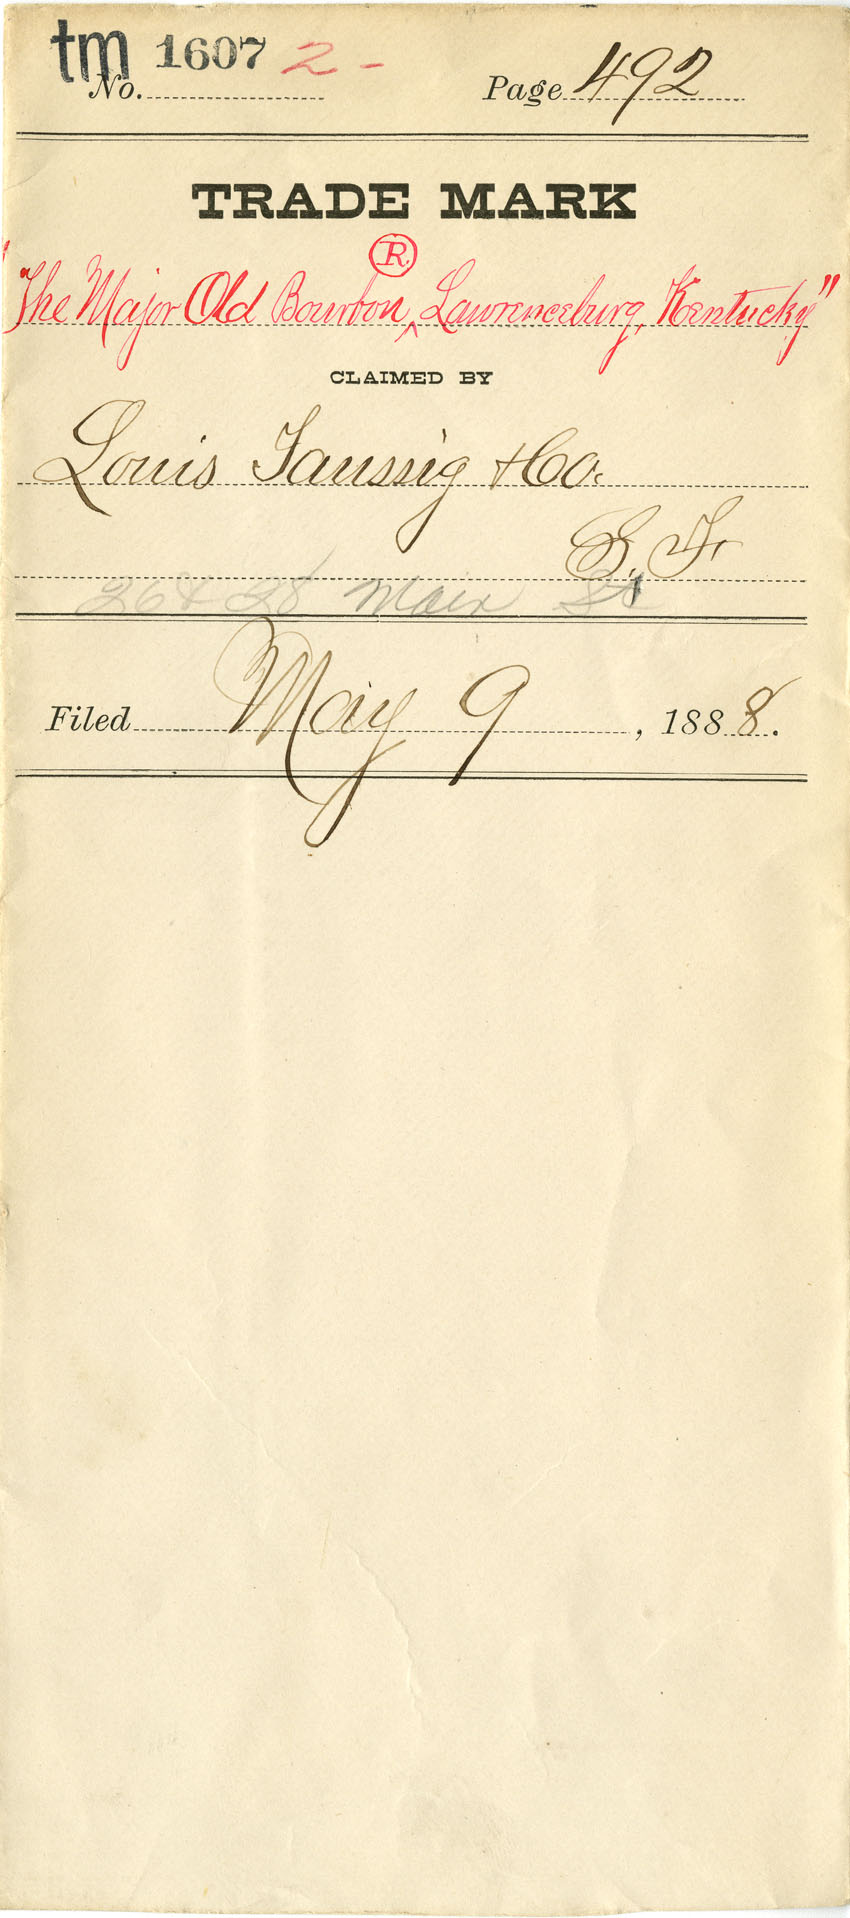 tm 1607 2-
No. Page 492
TRADE MARK
R
"The Major Old Bourbon ^ Lawrenceburg, Kentucky"
CLAIMED BY
Louis Taussig & Co.
S. F.
26 & 28 Main St
Filed May 9, 1888.